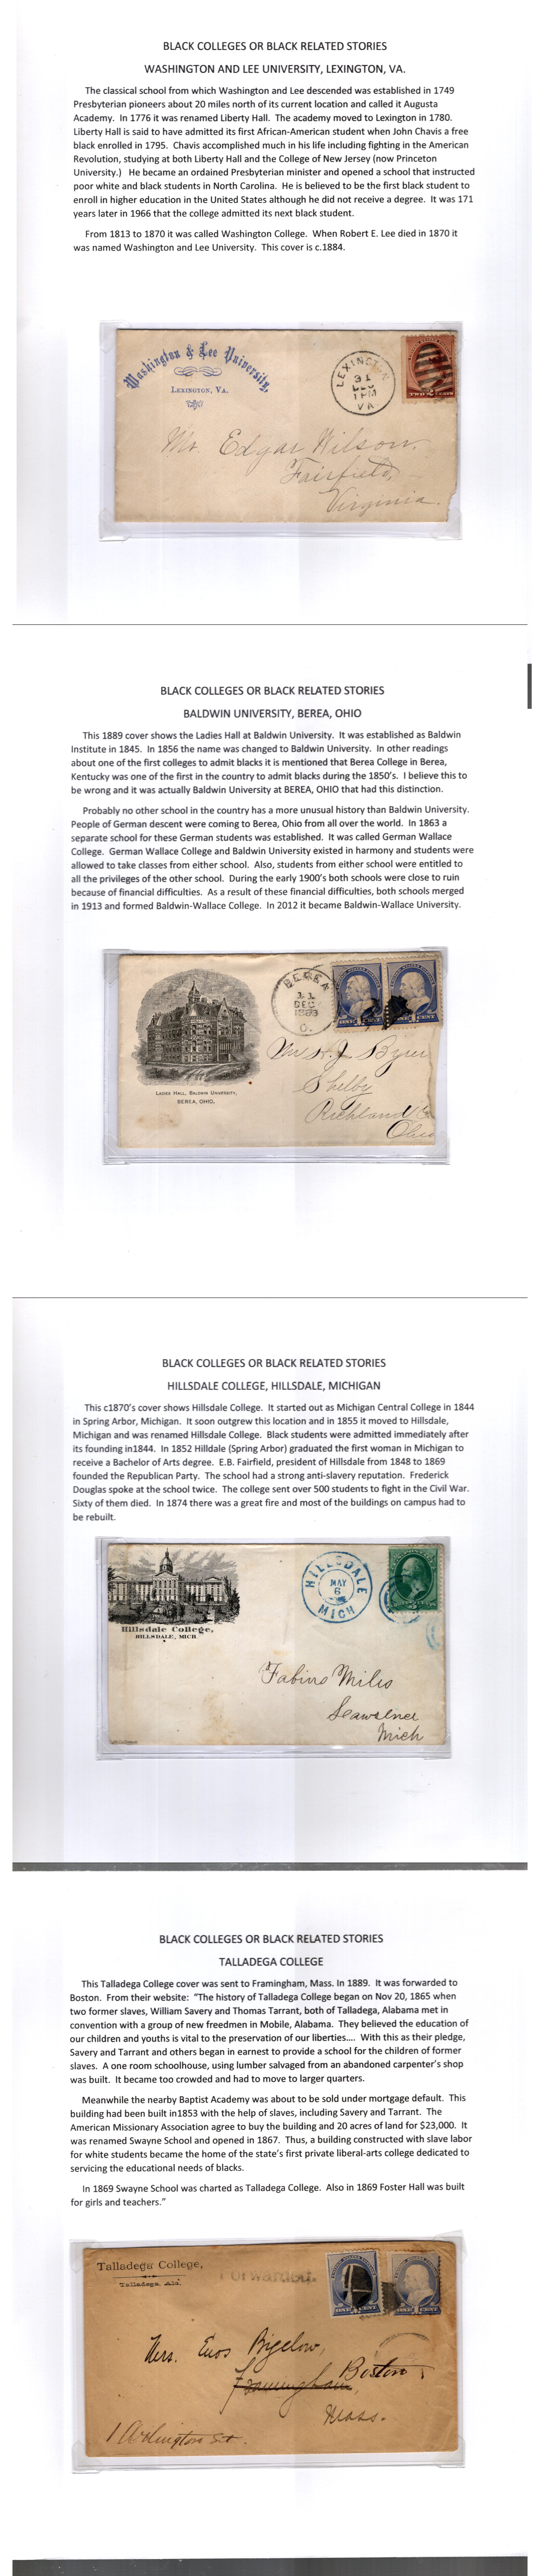 BLACK COLLEGES OR BLACK RELATED STORIES
WASHINGTON AND LEE UNIVERSITY, LEXINGTON, VA.
The classical school from which Washington and Lee descended was established in 1749
Presbyterian pioneers about 20 miles north of its current location and called it Augusta
Academy. In 1776 it was renamed Liberty Hall. The academy moved to Lexington in 1780.
Liberty Hall is said to have admitted its first African-American student when John Chavis a free
black enrolled in 1795. Chavis accomplished much in his life including fighting in the American
Revolution, studying at both Liberty Hall and the College of New Jersey (now Princeton
University.) He became an ordained Presbyterian minister and opened a school that instructed
poor white and black students in North Carolina. He is believed to be the first black student to
enroll in higher education in the United States although he did not receive a degree. It was 171
years later in 1966 that the college admitted its next black student.
From 1813 to 1870 it was called Washington College. When Robert E. Lee died in 1870 it
was named Washington and Lee University. This cover is c.1884.
Washington & Lee University,
LEXINGTON, VA.
LEXINGTON
31
DEC
1 PM
VA
TWO 2 CENTS
Mr. Edgar Wilson,
Fairfield,
Virginia.
BLACK COLLEGES OR BLACK RELATED STORIES
BALDWIN UNIVERSITY, BEREA, OHIO
This 1889 cover shows the Ladies Hall at Baldwin University. It was established as Baldwin
Institute in 1845. In 1856 the name was changed to Baldwin University. In other readings
about one of the first colleges to admit blacks it is mentioned that Berea College in Berea,
Kentucky was one of the first in the country to admit blacks during the 1850's. I believe this to
be wrong and it was actually Baldwin University at BEREA, OHIO that had this distinction.
Probably no other school in the country has a more unusual history than Baldwin University.
People of German descent were coming to Berea, Ohio from all over the world. In 1863 a
separate school for these German students was established. It was called German Wallace
College. German Wallace College and Baldwin University existed in harmony and students were
allowed to take classes from either school. Also, students from either school were entitled to
all the privileges of the other school. During the early 1900's both schools were close to ruin
because of financial difficulties. As a result of these financial difficulties, both schools merged
in 1913 and formed Baldwin-Wallace College. In 2012 it became Baldwin-Wallace University.
BEREA
11
DEC
O.
ONE CENT
ONE CENT
LADIES HALL, BALDWIN UNIVERSITY,
BEREA, OHIO.
Shelby
Richland Co
Ohio
BLACK COLLEGES OR BLACK RELATED STORIES
HILLSDALE COLLEGE, HILLSDALE, MICHIGAN
This c1870's cover shows Hillsdale College. It started out as Michigan Central College in 1844
in Spring Arbor, Michigan. It soon outgrew this location and in 1855 it moved to Hillsdale,
Michigan and was renamed Hillsdale College. Black students were admitted immediately after
its founding in1844. In 1852 Hilldale (Spring Arbor) graduated the first woman in Michigan to
receive a Bachelor of Arts degree. E.B. Fairfield, president of Hillsdale from 1848 to 1869
founded the Republican Party. The school had a strong anti-slavery reputation. Frederick
Douglas spoke at the school twice. The college sent over 500 students to fight in the Civil War.
Sixty of them died. In 1874 there was a great fire and most of the buildings on campus had to
be rebuilt.
Hillsdale College,
HILLSDALE, MICH.
HILLSDALE
MAY
6
MICH
Fabins Miles
Mich
BLACK COLLEGES OR BLACK RELATED STORIES
TALLADEGA COLLEGE
This Talladega College cover was sent to Framingham, Mass. In 1889. It was forwarded to
Boston. From their website: "The history of Talladega College began on Nov 20, 1865 when
two former slaves, William Savery and Thomas Tarrant, both of Talladega, Alabama met in
convention with a group of new freedmen in Mobile, Alabama. They believed the education of
our children and youths is vital to the preservation of our liberties.... With this as their pledge,
Savery and Tarrant and others began in earnest to provide a school for the children of former
slaves. A one room schoolhouse, using lumber salvaged from an abandoned carpenter's shop
was built. It became too crowded and had to move to larger quarters.
Meanwhile the nearby Baptist Academy was about to be sold under mortgage default. This
building had been built in1853 with the help of slaves, including Savery and Tarrant. The
American Missionary Association agree to buy the building and 20 acres of land for $23,000. It
was renamed Swayne School and opened in 1867. Thus, a building constructed with slave labor
for white students became the home of the state's first private liberal-arts college dedicated to
servicing the educational needs of blacks.
In 1869 Swayne School was charted as Talladega College. Also in 1869 Foster Hall was built
for girls and teachers."
Talladega College,
Talladega, Ala.
Forwarded.
ONE CENT
ONE CENT
Mrs. Enos Bigelow,
Framingham, Boston
Mass.
1 Arlington St.